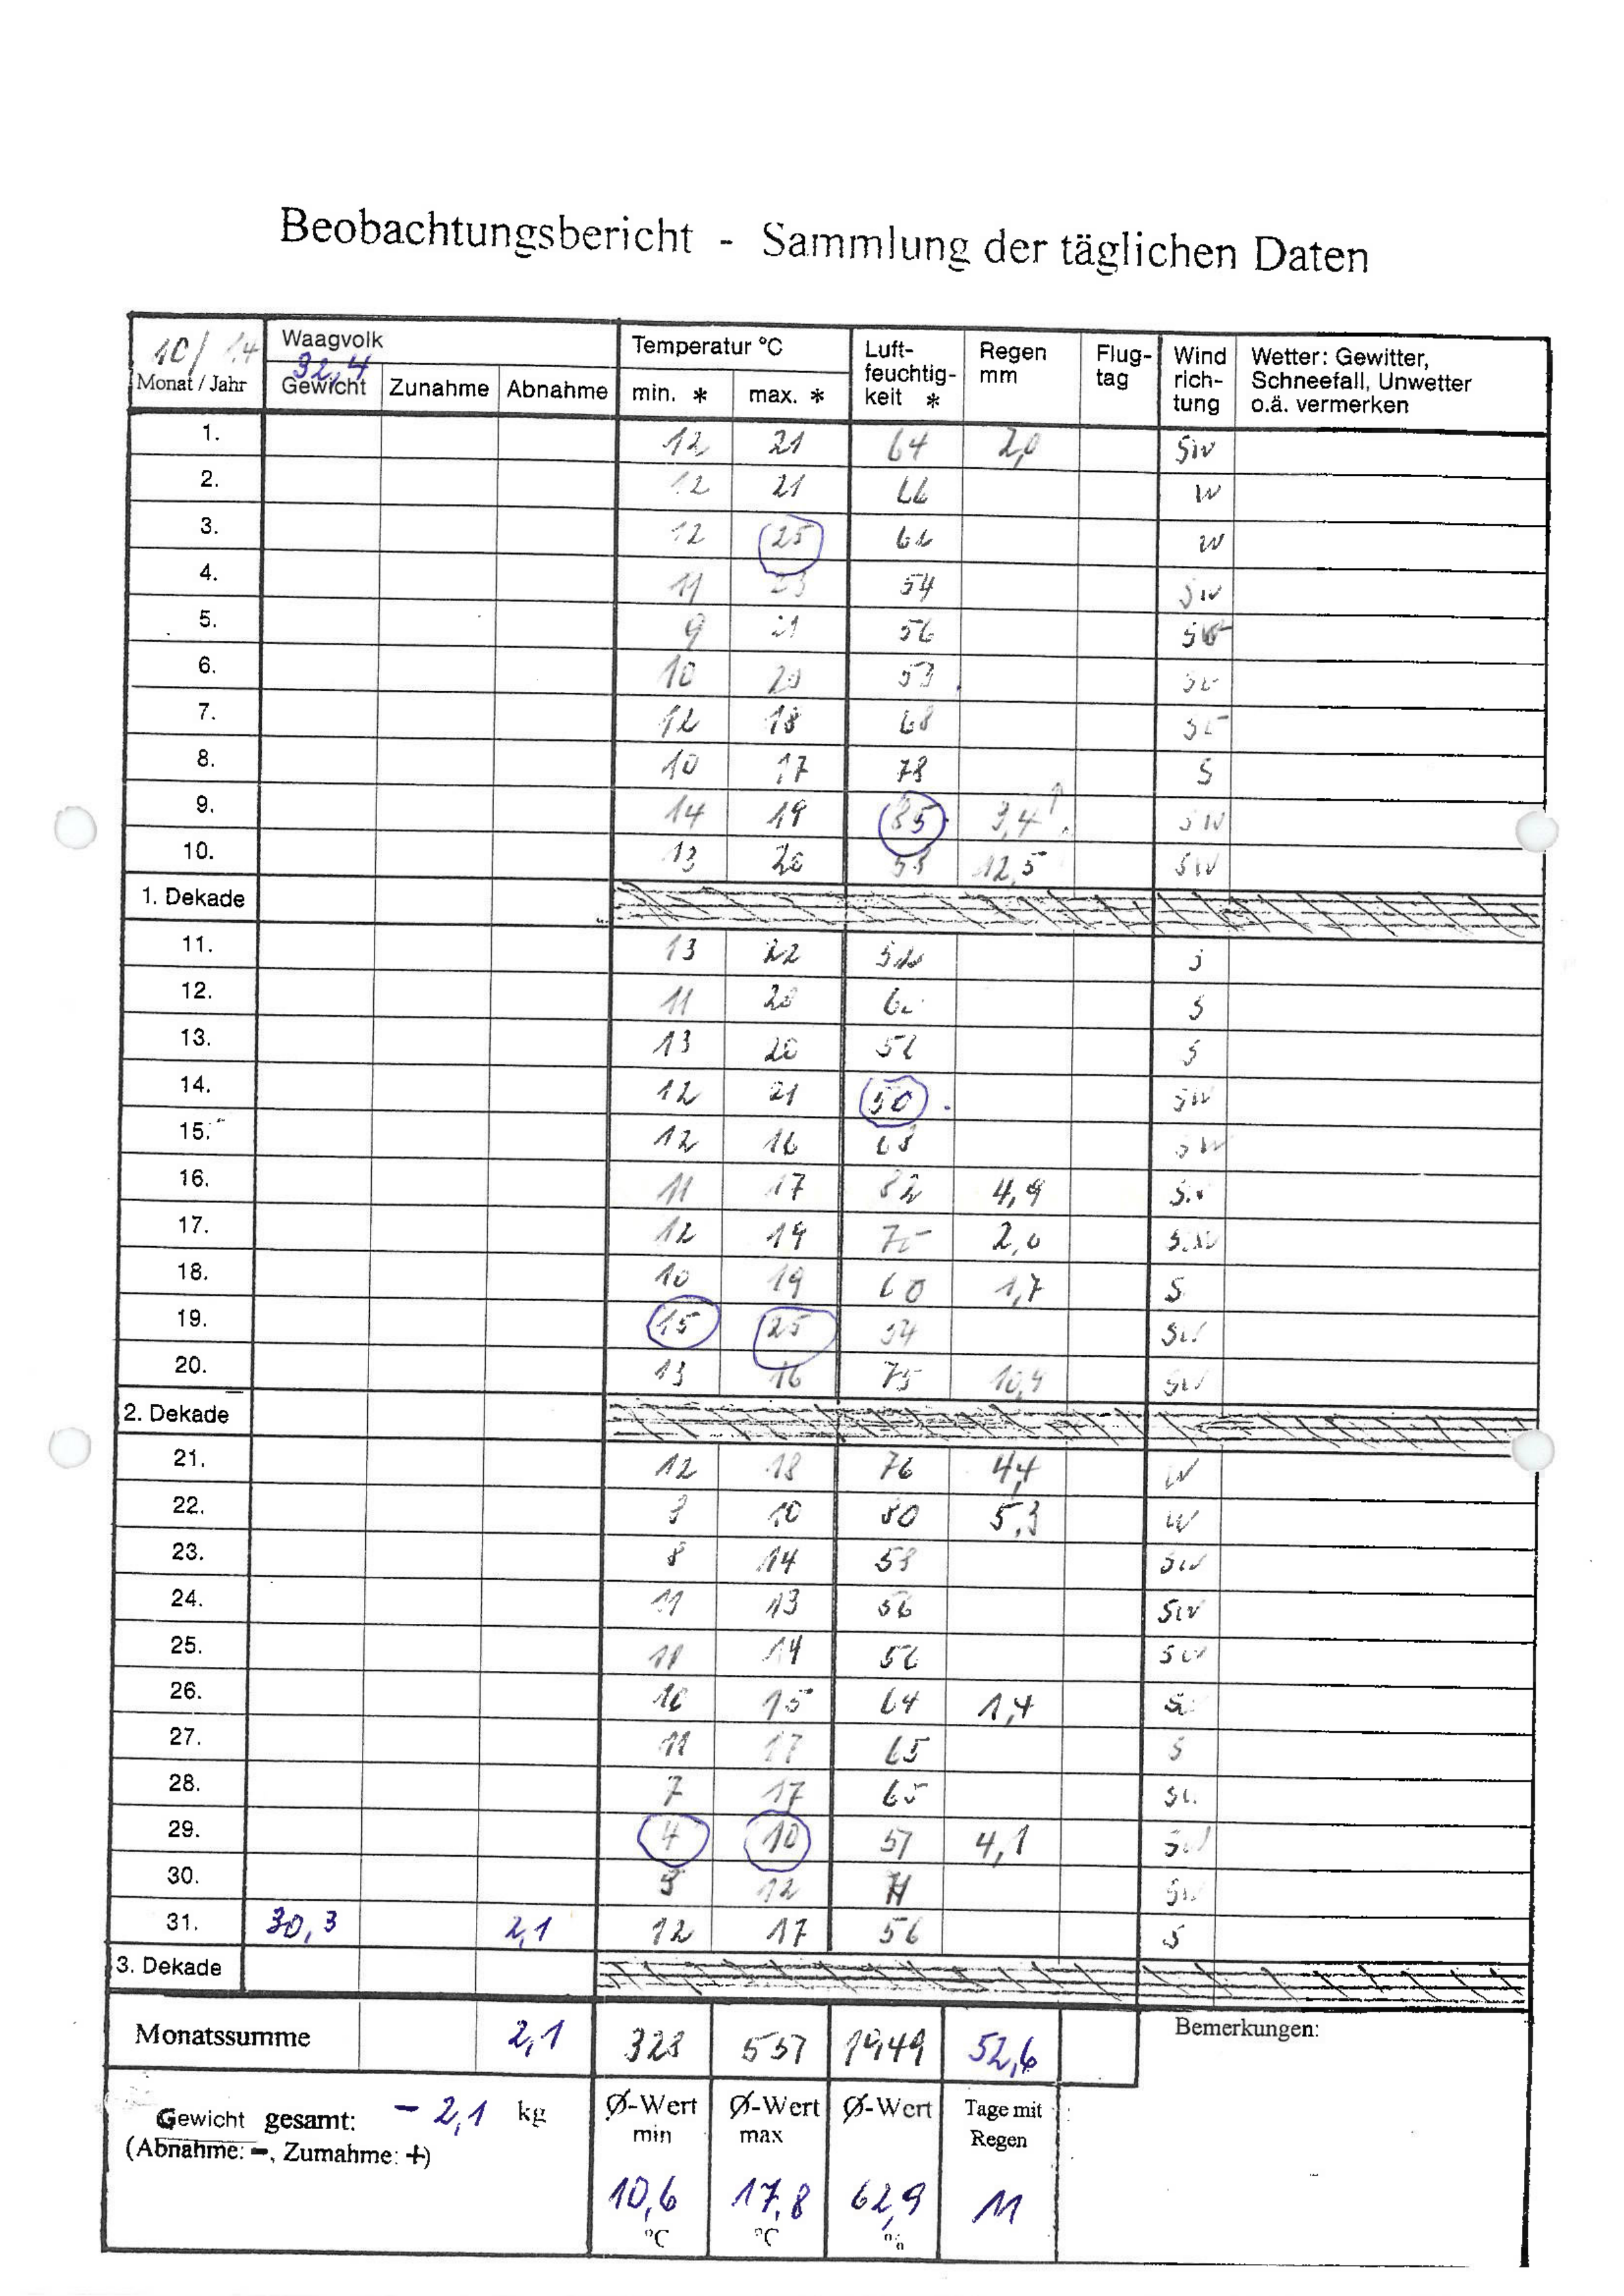 Beobachtungsbericht - Sammlung der täglichen Daten
10/14 Monat / Jahr Waagvolk 32,4 Gewicht Zunahme Abnahme Temperatur °C min. * max. * Luft-feuchtig-keit * Regen mm Flug-tag Wind rich-tung Wetter: Gewitter, Schneefall, Unwetter o.ä. vermerken
1. 12 21 64 2,0 SW
2. 12 21 66 W
3. 12 25 W
4. 11 23 54 SW
5. 9 21 56 SW
6. 10 20 53
7. 12 18 68
8. 10 17 78 S
9. 14 19 85 3,4 SW
10. 13 20 12,5 SW
1. Dekade
11. 13 22 S
12. 11 S
13. 13 20 S
14. 12 21 50 SW
15. 12 16 SW
16. 11 17 82 4,9
17. 12 19 75 2,0 SW
18. 10 19 60 1,7 S
19. 15 25 54 SW
20. 13 16 75 10,9 SW
2. Dekade
21. 12 18 76 4,4 W
22. 10 80 5,3 W
23. 8 14 SW
24. 11 13 56 SW
25. 14 56 SW
26. 10 15 64 1,4
27. 11 17 65 S
28. 7 17 65
29. 4 10 57 4,1 SW
30. 12 SW
31. 30,3 2,1 12 17 56 S
3. Dekade
Monatssumme 2,1 328 551 1949 52,6 Bemerkungen:
Gewicht gesamt: - 2,1 kg Ø-Wert min Ø-Wert max Ø-Wert Tage mit Regen
(Abnahme: -, Zumahme: +)
10,6 °C 17,8 °C 62,9 % 11